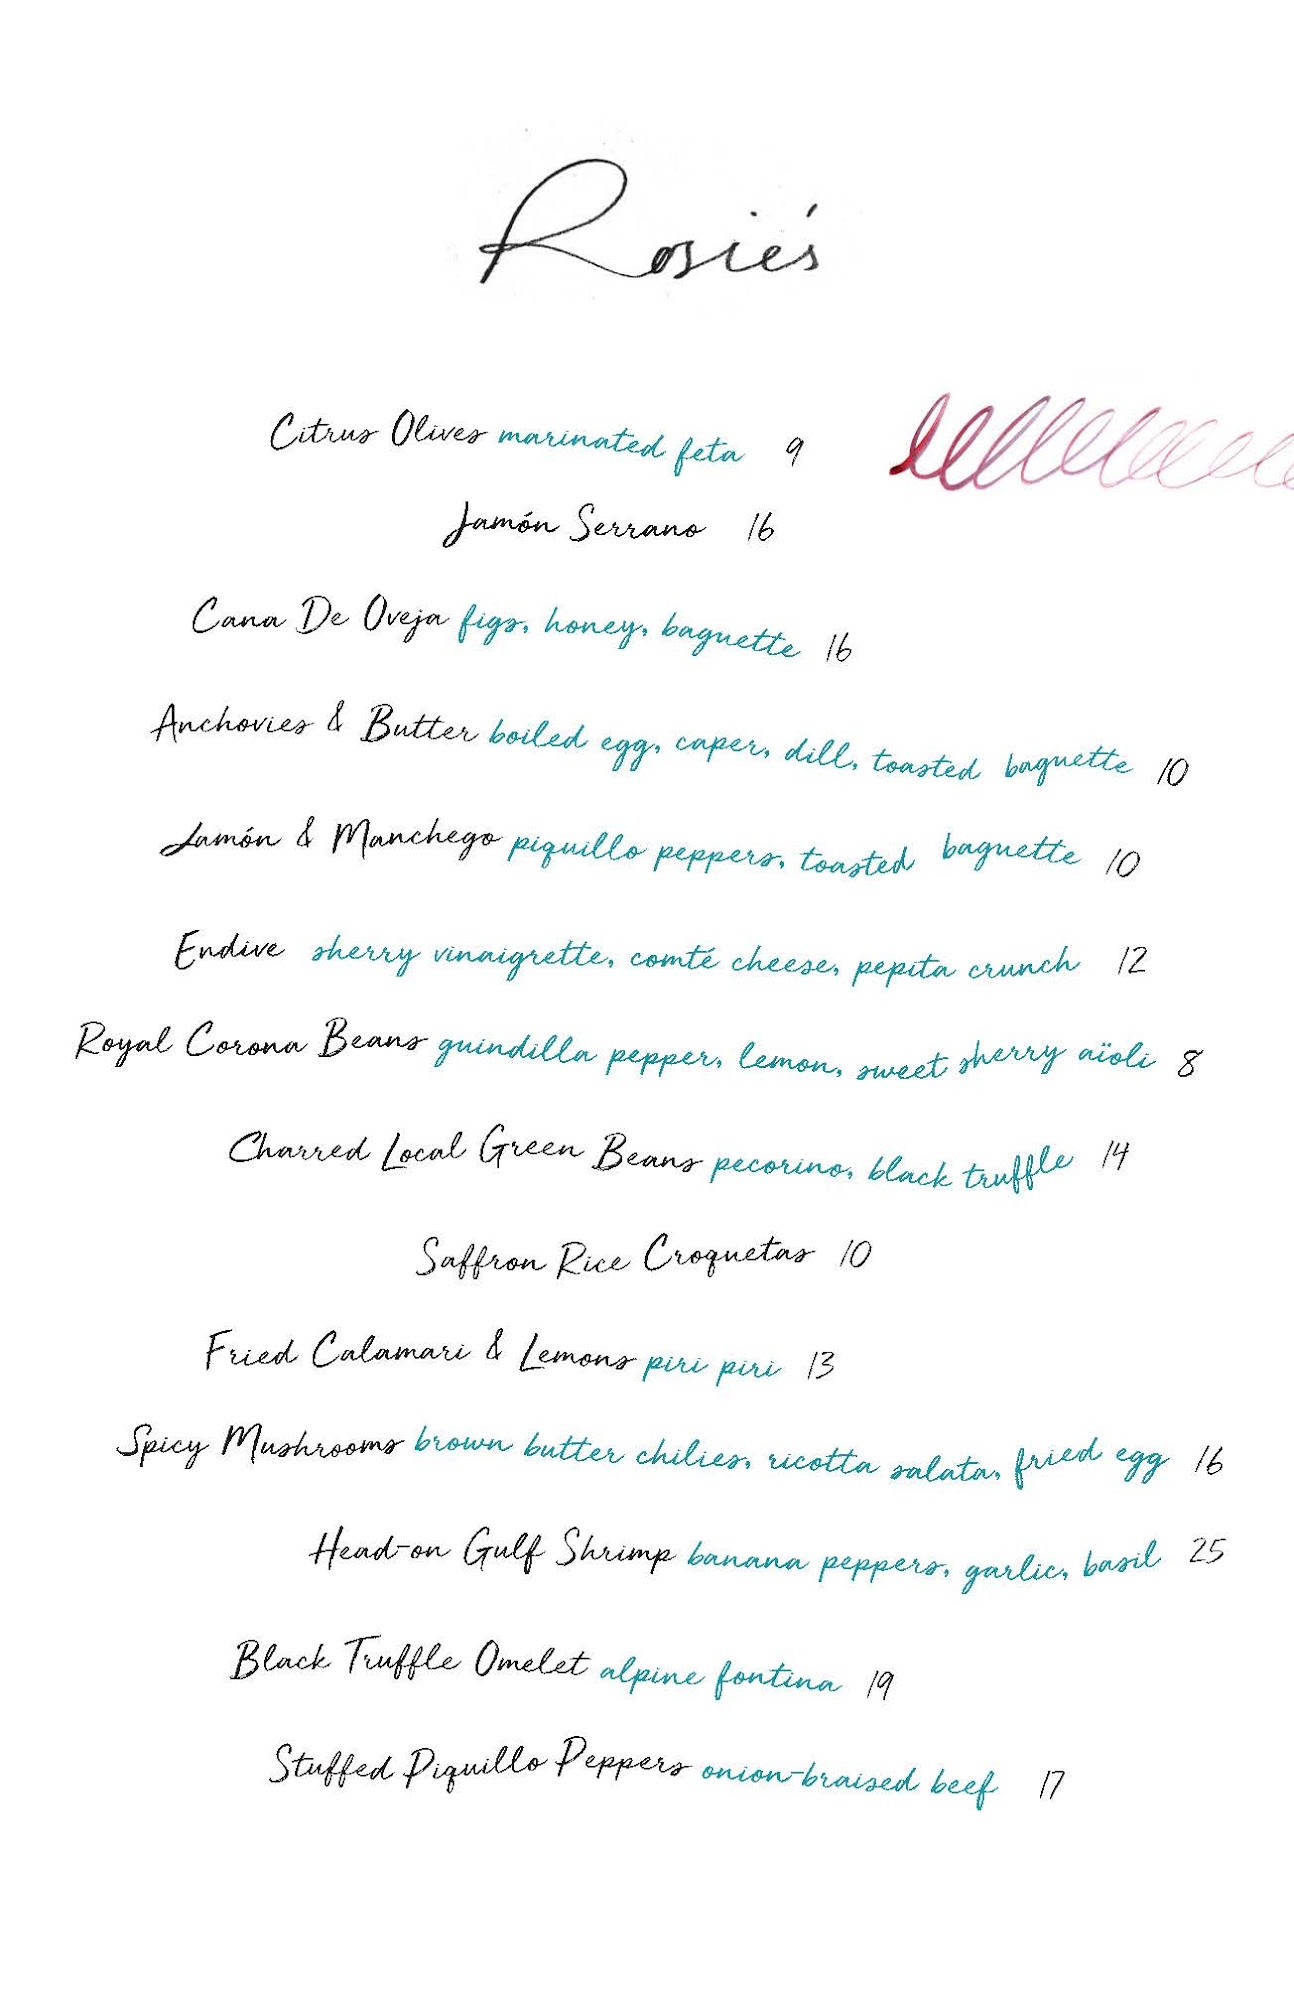 Rosie's
Citrus Olives marinated feta 9
Jamón Serrano 16
Cana De Oveja figs, honey, baguette 16
Anchovies & Butter boiled egg, caper, dill, toasted baguette 10
Jamón & Manchego piquillo peppers, toasted baguette 10
Endive sherry vinaigrette, comté cheese, pepita crunch 12
Royal Corona Beans guindilla pepper, lemon, sweet sherry aïoli 8
Charred Local Green Beans pecorino, black truffle 14
Saffron Rice Croquetas 10
Fried Calamari & Lemons piri piri 13
Spicy Mushrooms brown butter chilies, ricotta salata, fried egg 16
Head-on Gulf Shrimp banana peppers, garlic, basil 25
Black Truffle Omelet alpine fontina 19
Stuffed Piquillo Peppers onion-braised beef 17